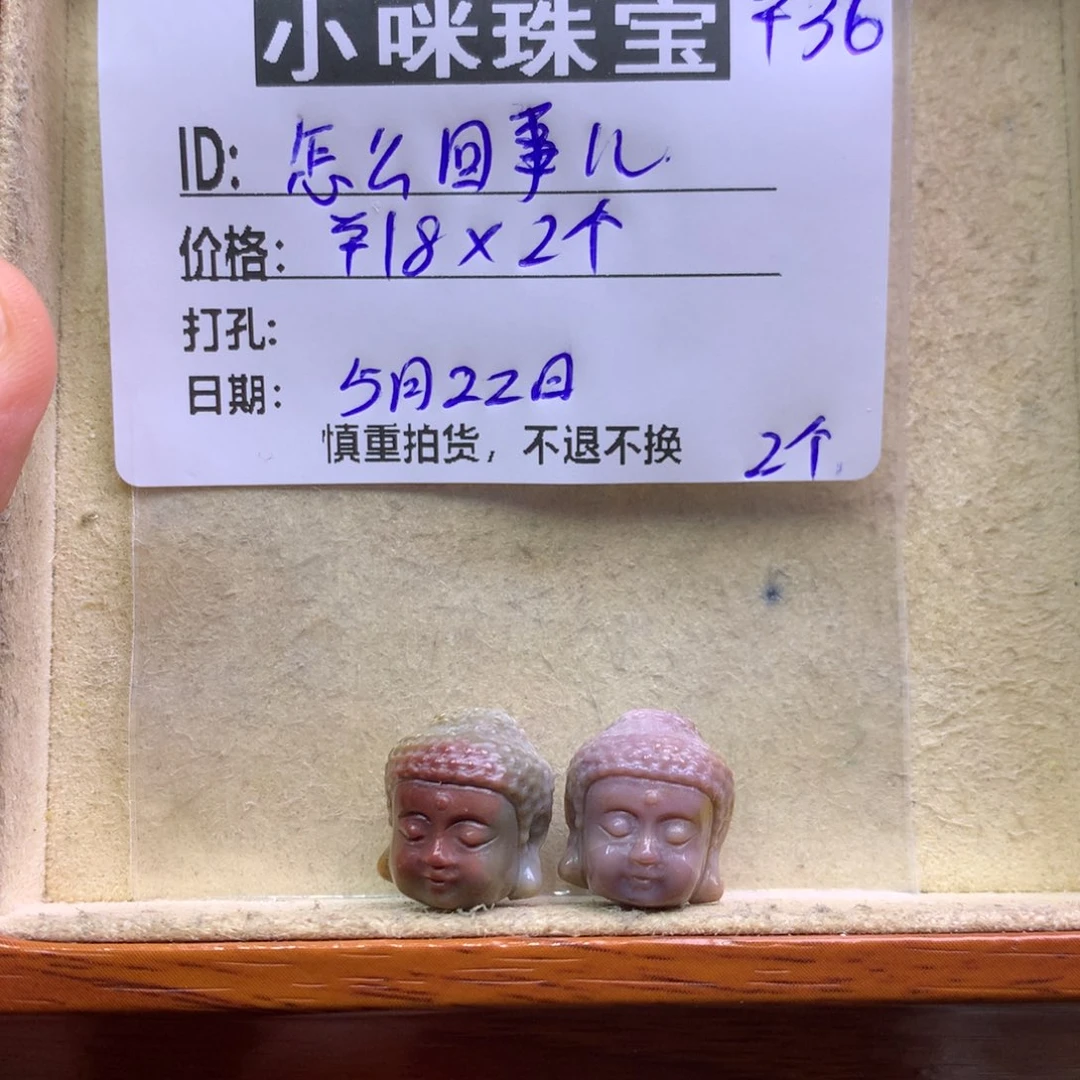 小咪珠宝 ¥36
ID: 怎么回事儿
价格: ¥18×2个
打孔:
日期: 5月22日
慎重拍货，不退不换 2个